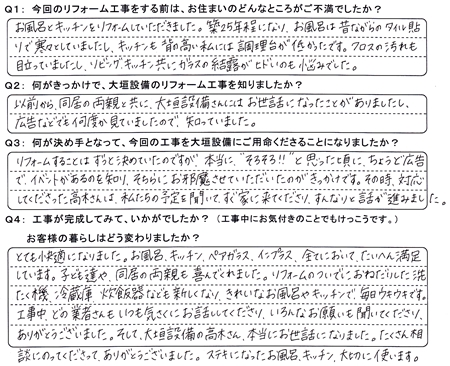 Q1: 今回のリフォーム工事をする前は、お住まいのどんなところがご不満でしたか?
お風呂とキッチンをリフォームしていただきました。築25年程になり、お風呂は昔ながらのタイル貼
りで寒々としていましたし、キッチンも背の高い私には調理台が低かったです。クロスの汚れも
目立っていましたし、リビングキッチン共にガラスの結露がヒドいのも悩みでした。
Q2: 何がきっかけで、大垣設備のリフォーム工事を知りましたか?
以前から、同居の両親と共に、大垣設備さんにはお世話になったことがありましたし、
広告などでも何度か見ていましたので、知っていました。
Q3: 何が決め手となって、今回の工事を大垣設備にご用命くださることになりましたか?
リフォームすることはずっと決めていたのですが、本当に、"そろそろ!!"と思った頃に、ちょうど広告
で、イベントがあるのを知り、そちらにお邪魔させていただいたのがきっかけです。その時、対応
してくださった高木さんは、私たちの予定を聞いて、すぐ家に来てくださり、すんなりと話が進みました。
Q4: 工事が完成してみて、いかがでしたか?(工事中にお気付きのことでもけっこうです。)
お客様の暮らしはどう変わりましたか?
とても快適になりました。お風呂、キッチン、ペアガラス、インプラス、全てにおいて、たいへん満足
しています。子ども達や、同居の両親も喜んでくれました。リフォームのついでにおねだりした洗
たく機、冷蔵庫、炊飯器なども新しくなり、きれいなお風呂やキッチンで毎日ウキウキです。
工事中、どの業者さんもいつも気さくにお話ししてくださり、いろんなお願いも聞いてくださり、
ありがとうございました。そして、大垣設備の高木さん、本当にお世話になりました。たくさん相
談にのってくださって、ありがとうございました。ステキになったお風呂、キッチン、大切に使います。